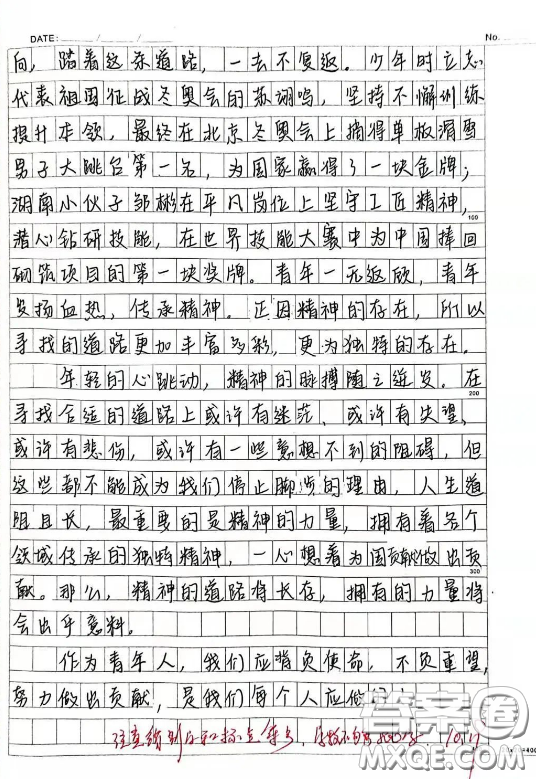 DATE: No.
向，踏着这条道路，一去不复返。少年时立志
代表祖国征战冬奥会的苏翊鸣，坚持不懈训练
提升本领，最终在北京冬奥会上摘得单板滑雪
男子大跳台第一名，为国家赢得了一块金牌；
湖南小伙子邹彬在平凡岗位上坚守工匠精神，
100
潜心钻研技能，在世界技能大赛中为中国捧回
砌筑项目的第一块奖牌。青年一无返顾，青年
发扬血热，传承精神。正因精神的存在，所以
寻找的道路更加丰富多彩，更为独特的存在。
年轻的心跳动，精神的脉搏随之迸发。在
200
寻找合适的道路上或许有迷茫，或许有失望，
或许有悲伤，或许有一些意想不到的阻碍，但
这些都不能成为我们停止脚步的理由，人生道
阻且长，最重要的是精神的力量，拥有着各个
领域传承的独特精神，一心想着为国贡献做出贡
300
献。那么，精神的道路将长存，拥有的力量将
会出乎意料。
作为青年人，我们应背负使命，不负重望，
努力做出贡献，是我们每个人应做的
答案圈
400